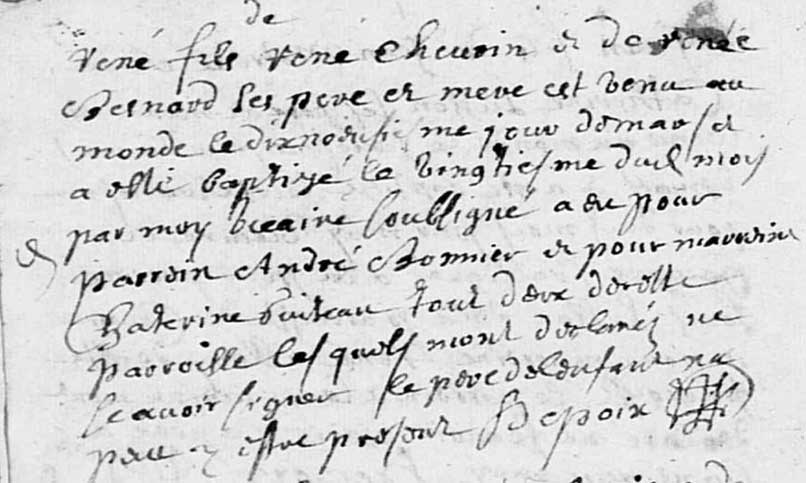 de
rené fils rené Cheurin et de renée
Besnard ses pere et mere est venu au
monde le dixneufiesme jour de mars et
a esté baptizé le vingtiesme dud mois
par moy vicaire soubsigné a eu pour
parrein André Bonnier et pour marreine
Katerine tout deux de cette
parroisse lesquels mont declaréz ne
scavoir signer le pere de lenfant na
peu y estre present Depoix